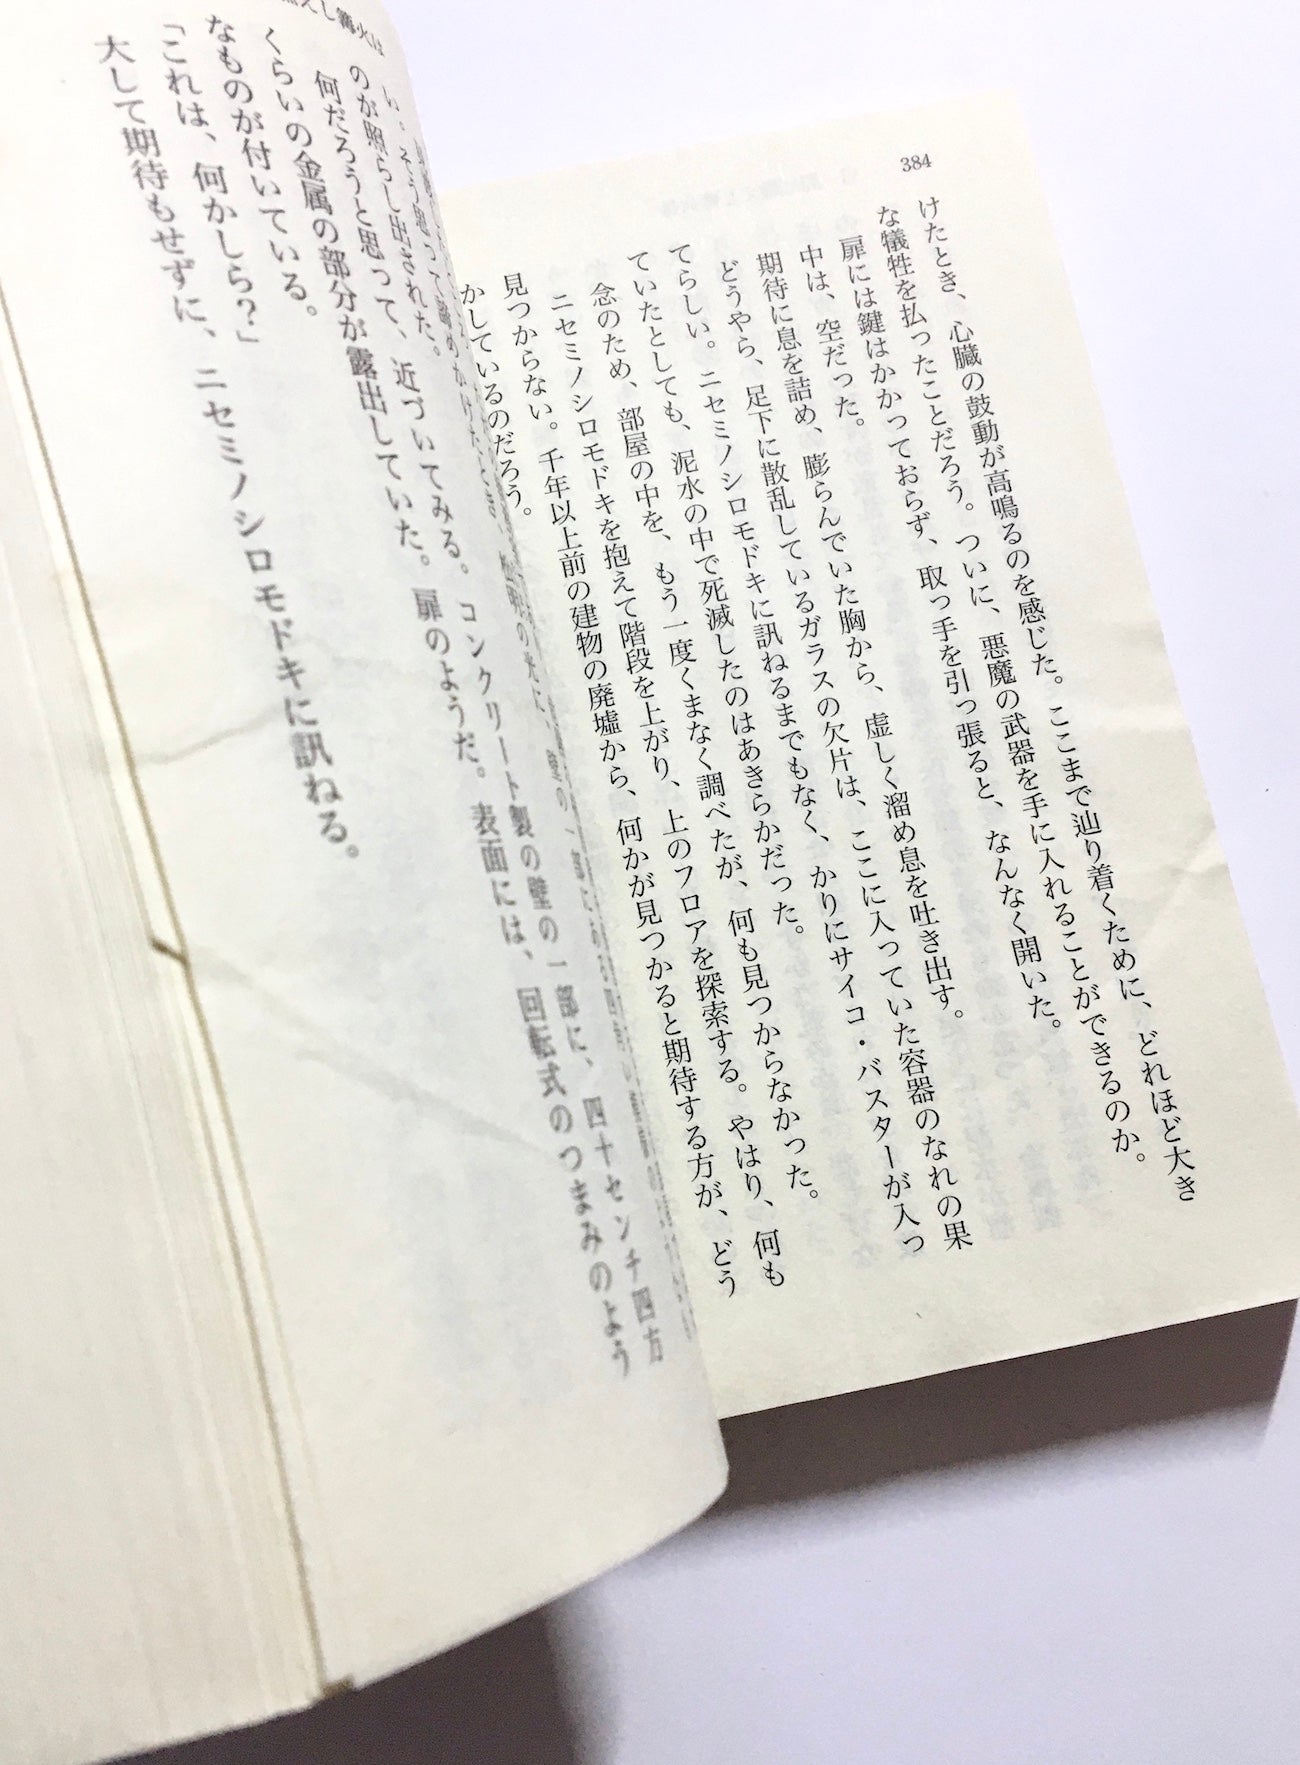 384
けたとき、心臓の鼓動が高鳴るのを感じた。ここまで辿り着くために、どれほど大き
な犠牲を払ったことだろう。ついに、悪魔の武器を手に入れることができるのか。
扉には鍵はかかっておらず、取っ手を引っ張ると、なんなく開いた。
中は、空だった。
期待に息を詰め、膨らんでいた胸から、虚しく溜め息を吐き出す。
どうやら、足下に散乱しているガラスの欠片は、ここに入っていた容器のなれの果
てらしい。ニセミノシロモドキに訊ねるまでもなく、かりにサイコ・バスターが入っ
ていたとしても、泥水の中で死滅したのはあきらかだった。
念のため、部屋の中を、もう一度くまなく調べたが、何も見つからなかった。
ニセミノシロモドキを抱えて階段を上がり、上のフロアを探索する。やはり、何も
見つからない。千年以上前の建物の廃墟から、何かが見つかると期待する方が、どう
かしているのだろう。
い。そう思って諦めかけたとき、
のが照らし出された。
何だろうと思って、近づいてみる。コンクリート製の壁の一部に、四十センチ四方
くらいの金属の部分が露出していた。扉のようだ。表面には、回転式のつまみのよう
なものが付いている。
「これは、何かしら?」
大して期待もせずに、ニセミノシロモドキに訊ねる。